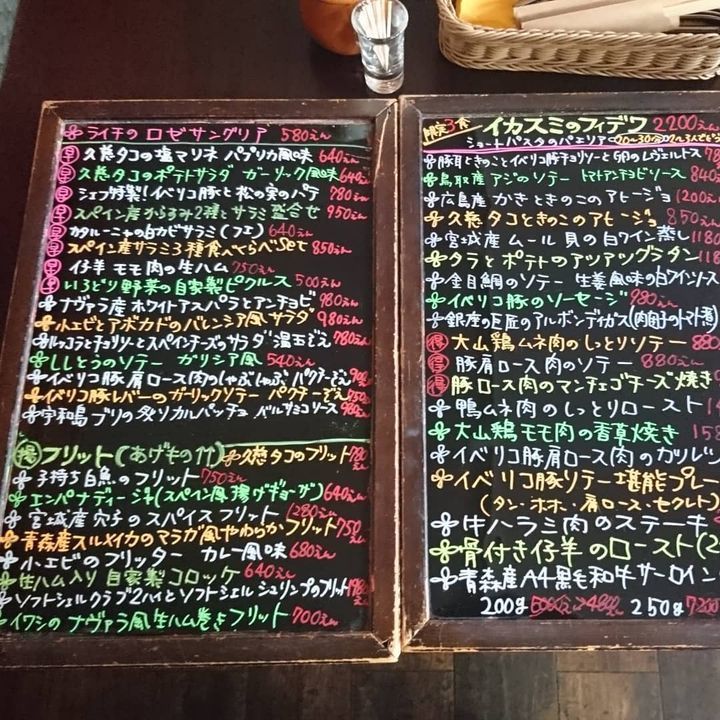 ライチの ロゼサングリア 580えん
早 久慈タコの塩マリネ パプリカ風味 640えん
早 久慈タコのポテトサラダ ガーリック風味 640えん
早 シェフ特製!イベリコ豚と松の実のパテ 780えん
早 スペイン産からみ2種とサラミ盛合せ 950えん
早 カタルーニャの白カビサラミ(フエ) 640えん
早 スペイン産サラミ3種食べくらべSet 850えん
早 仔羊モモ肉の生ハム 750えん
早 いろどり野菜の自家製ピクルス 500えん
ナヴァラ産ホワイトアスパラとアンチョビ 980えん
小エビとアボカドのバレンシア風サラダ 980えん
ルッコラとチョリソーとスペインチーズのサラダ 温玉どえ 780えん
ししとうのソテー ガリシア風 540えん
イベリコ豚肩ロース肉のしゃぶしゃぶ パクチーどえ
イベリコ豚レバーのガーリックソテー パクチーどえ
宇和島ブリの炙りカルパッチョ バルサミコソース
揚 フリット(あげもの) 久慈タコのフリット 780えん
子持ち白魚のフリット 750えん
エンパナディージャ(スペイン風揚げギョーザ) 640えん
宮城産穴子のスパイスフリット 1280えん
青森産スルメイカのマラガ風やわらかフリット 750えん
小エビのフリッター カレー風味 680えん
生ハム入り自家製コロッケ 640えん
ソフトシェルクラブ2ハイとソフトシェルシュリンプのフリット 1980えん
イワシのナヴァラ風生ハム巻きフリット 700えん
限定3食 イカスミのフィデワ 2200えん
ショートパスタのパエリア(20~30分)
豚耳ときのことイベリコ豚チョリソーと卵のレヴェルトス
鳥取産アジのソテー トマトアンチョビソース 840
広島産かきときのこのアヒージョ 1200え
久慈タコときのこのアヒージョ 850えん
宮城産ムール貝の白ワイン蒸し 1180
タラとポテトのアツアツグラタン 118
金目鯛のソテー 生姜風味の白ワインソース
イベリコ豚のソーセージ 980えん
銀座の巨匠のアルボンディガス(肉団子のトマト煮)
得 大山鶏ムネ肉のしっとりソテー 880
得 豚肩ロース肉のソテー 880えん
得 豚ロース肉のマンチェゴチーズ焼き
鴨ムネ肉のしっとりロースト
大山鶏モモ肉の香草焼き 158
イベリコ豚肩ロース肉のガルツ
イベリコ豚ソテー堪能プレー
(タン・ホホ・肩ロース・セクレト)
牛ハラミ肉のステーキ
骨付き仔羊のロースト(2
青森産A4黒毛和牛サーロイン
200g 5000えん→4800えん 250g 7200